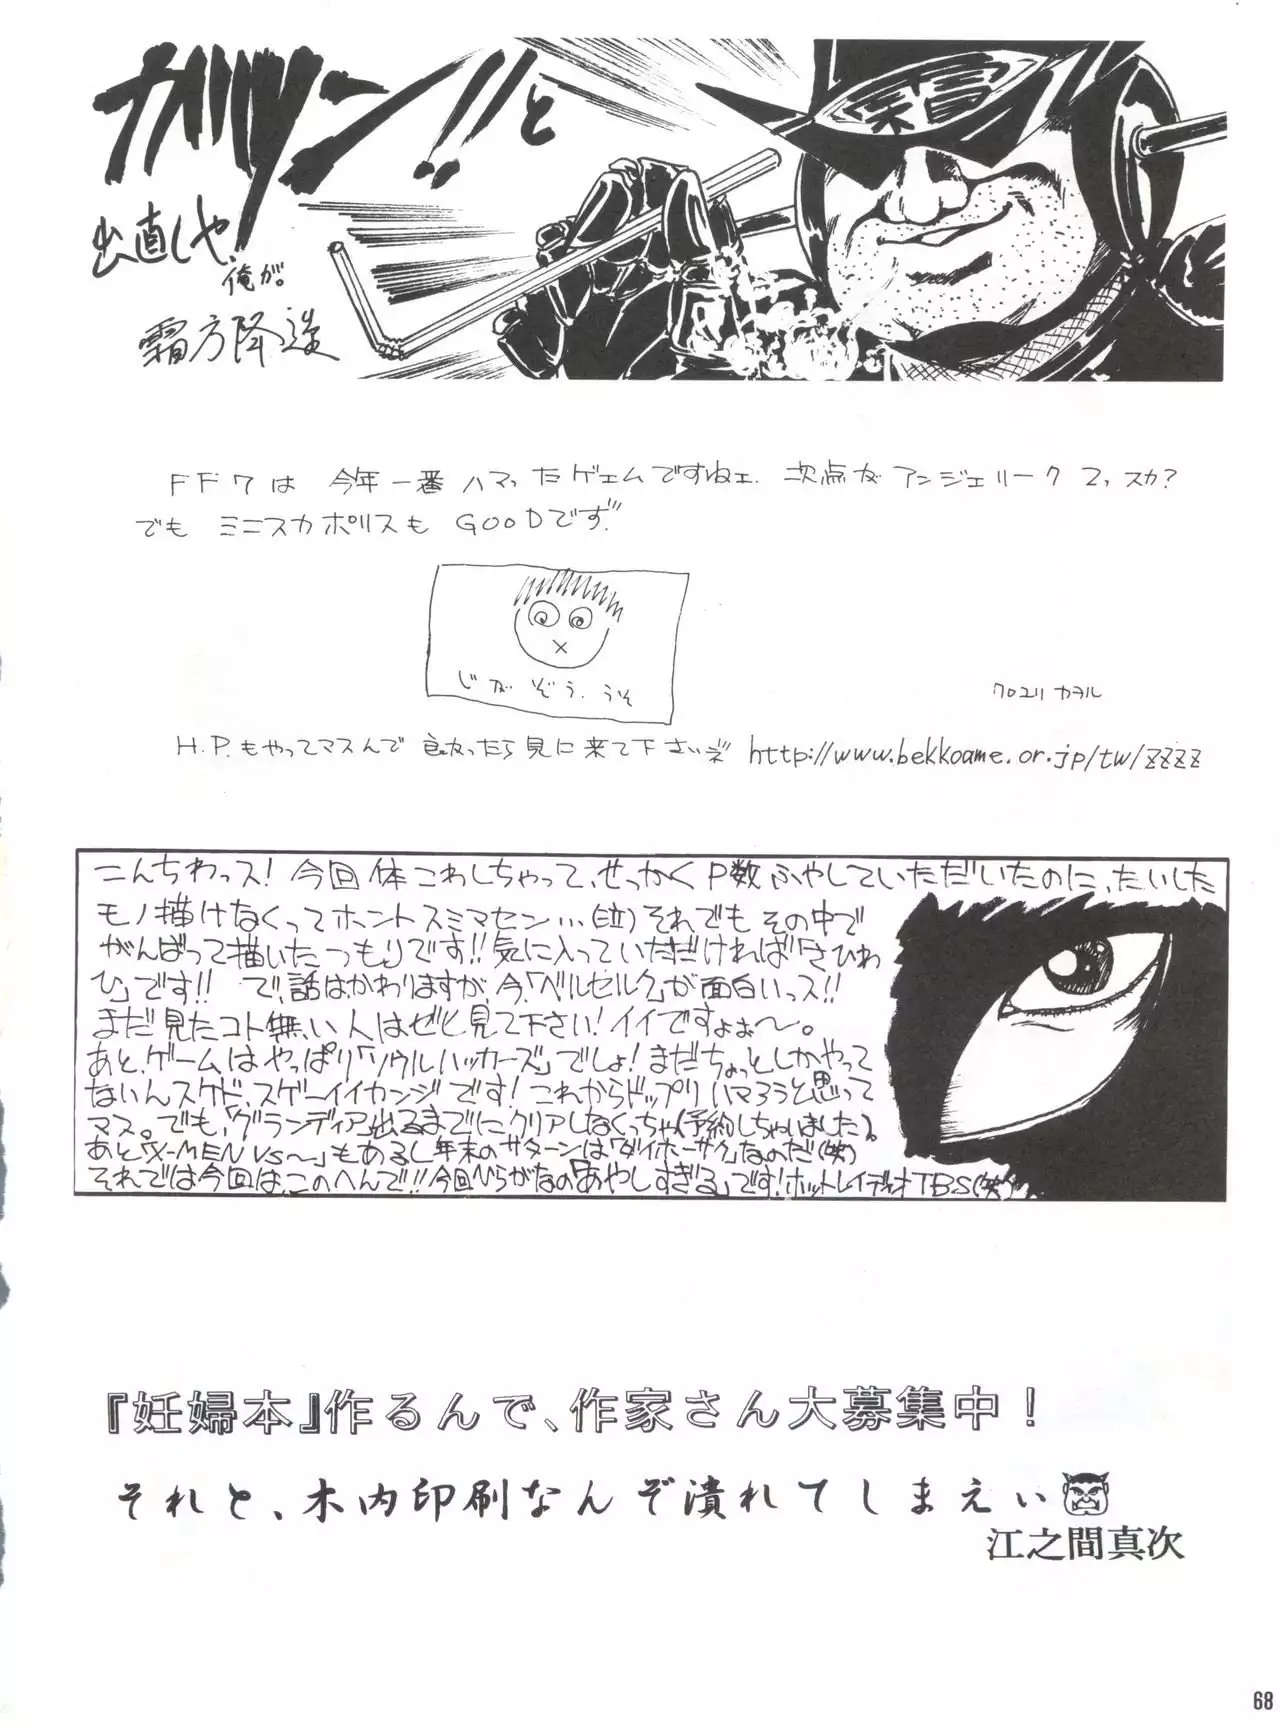 ガツン!!と
出直しや、
俺が。
霜方降造
FF7は 今年一番ハマったゲェムですねェ. 次点がアンジェリーク2っスカ?
でも ミニスカポリスも GOODです!!
じがぞう. うそ
クロユリ カヲル
H.P.もやってマスんで 良かったら見に来て下さいネ http://www.bekkoame.or.jp/tw/zzzz
こんちわっス! 今回体こわしちゃって、せっかくP数ふやしていただいたのに、たいした
モノ描けなくってホントスミマセン…(泣)それでもその中で
がんばって描いたつもりです!!気に入っていただければ「さひわ
ひ」です!! で、話はかわりますが今、「ベルセルク」が面白いっス!!
まだ見たコト無い人はぜひ見て下さい!イイですよぉ〜。
あと、ゲームはやっぱり「ソウルハッカーズ」でしょ!まだちょっとしかやって
ないんスケド、スゲーイイカンジです!これからドップリハマろうと思って
マス。でも「グランディア」出るまでにクリアしなくっちゃ(予約しちゃいました)。
あと「X-MEN VS〜」もあるし年末のサターンは「ダイホーサク」なのだ(笑)
それでは今回は、このへんで!!今回ひらがなの「あやしすぎる」です!ホットレイディオTBS(笑)
『妊婦本』作るんで、作家さん大募集中!
それと、木内印刷なんぞ潰れてしまえぃ
江之間真次
68